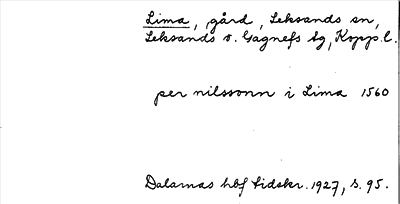 Lima, gård, Leksands sn,
Leksands o. Gagnefs tg, Kopp.l.
per nilssonn i Lima 1560
Dalarnas hbf tidskr. 1927, s. 95.